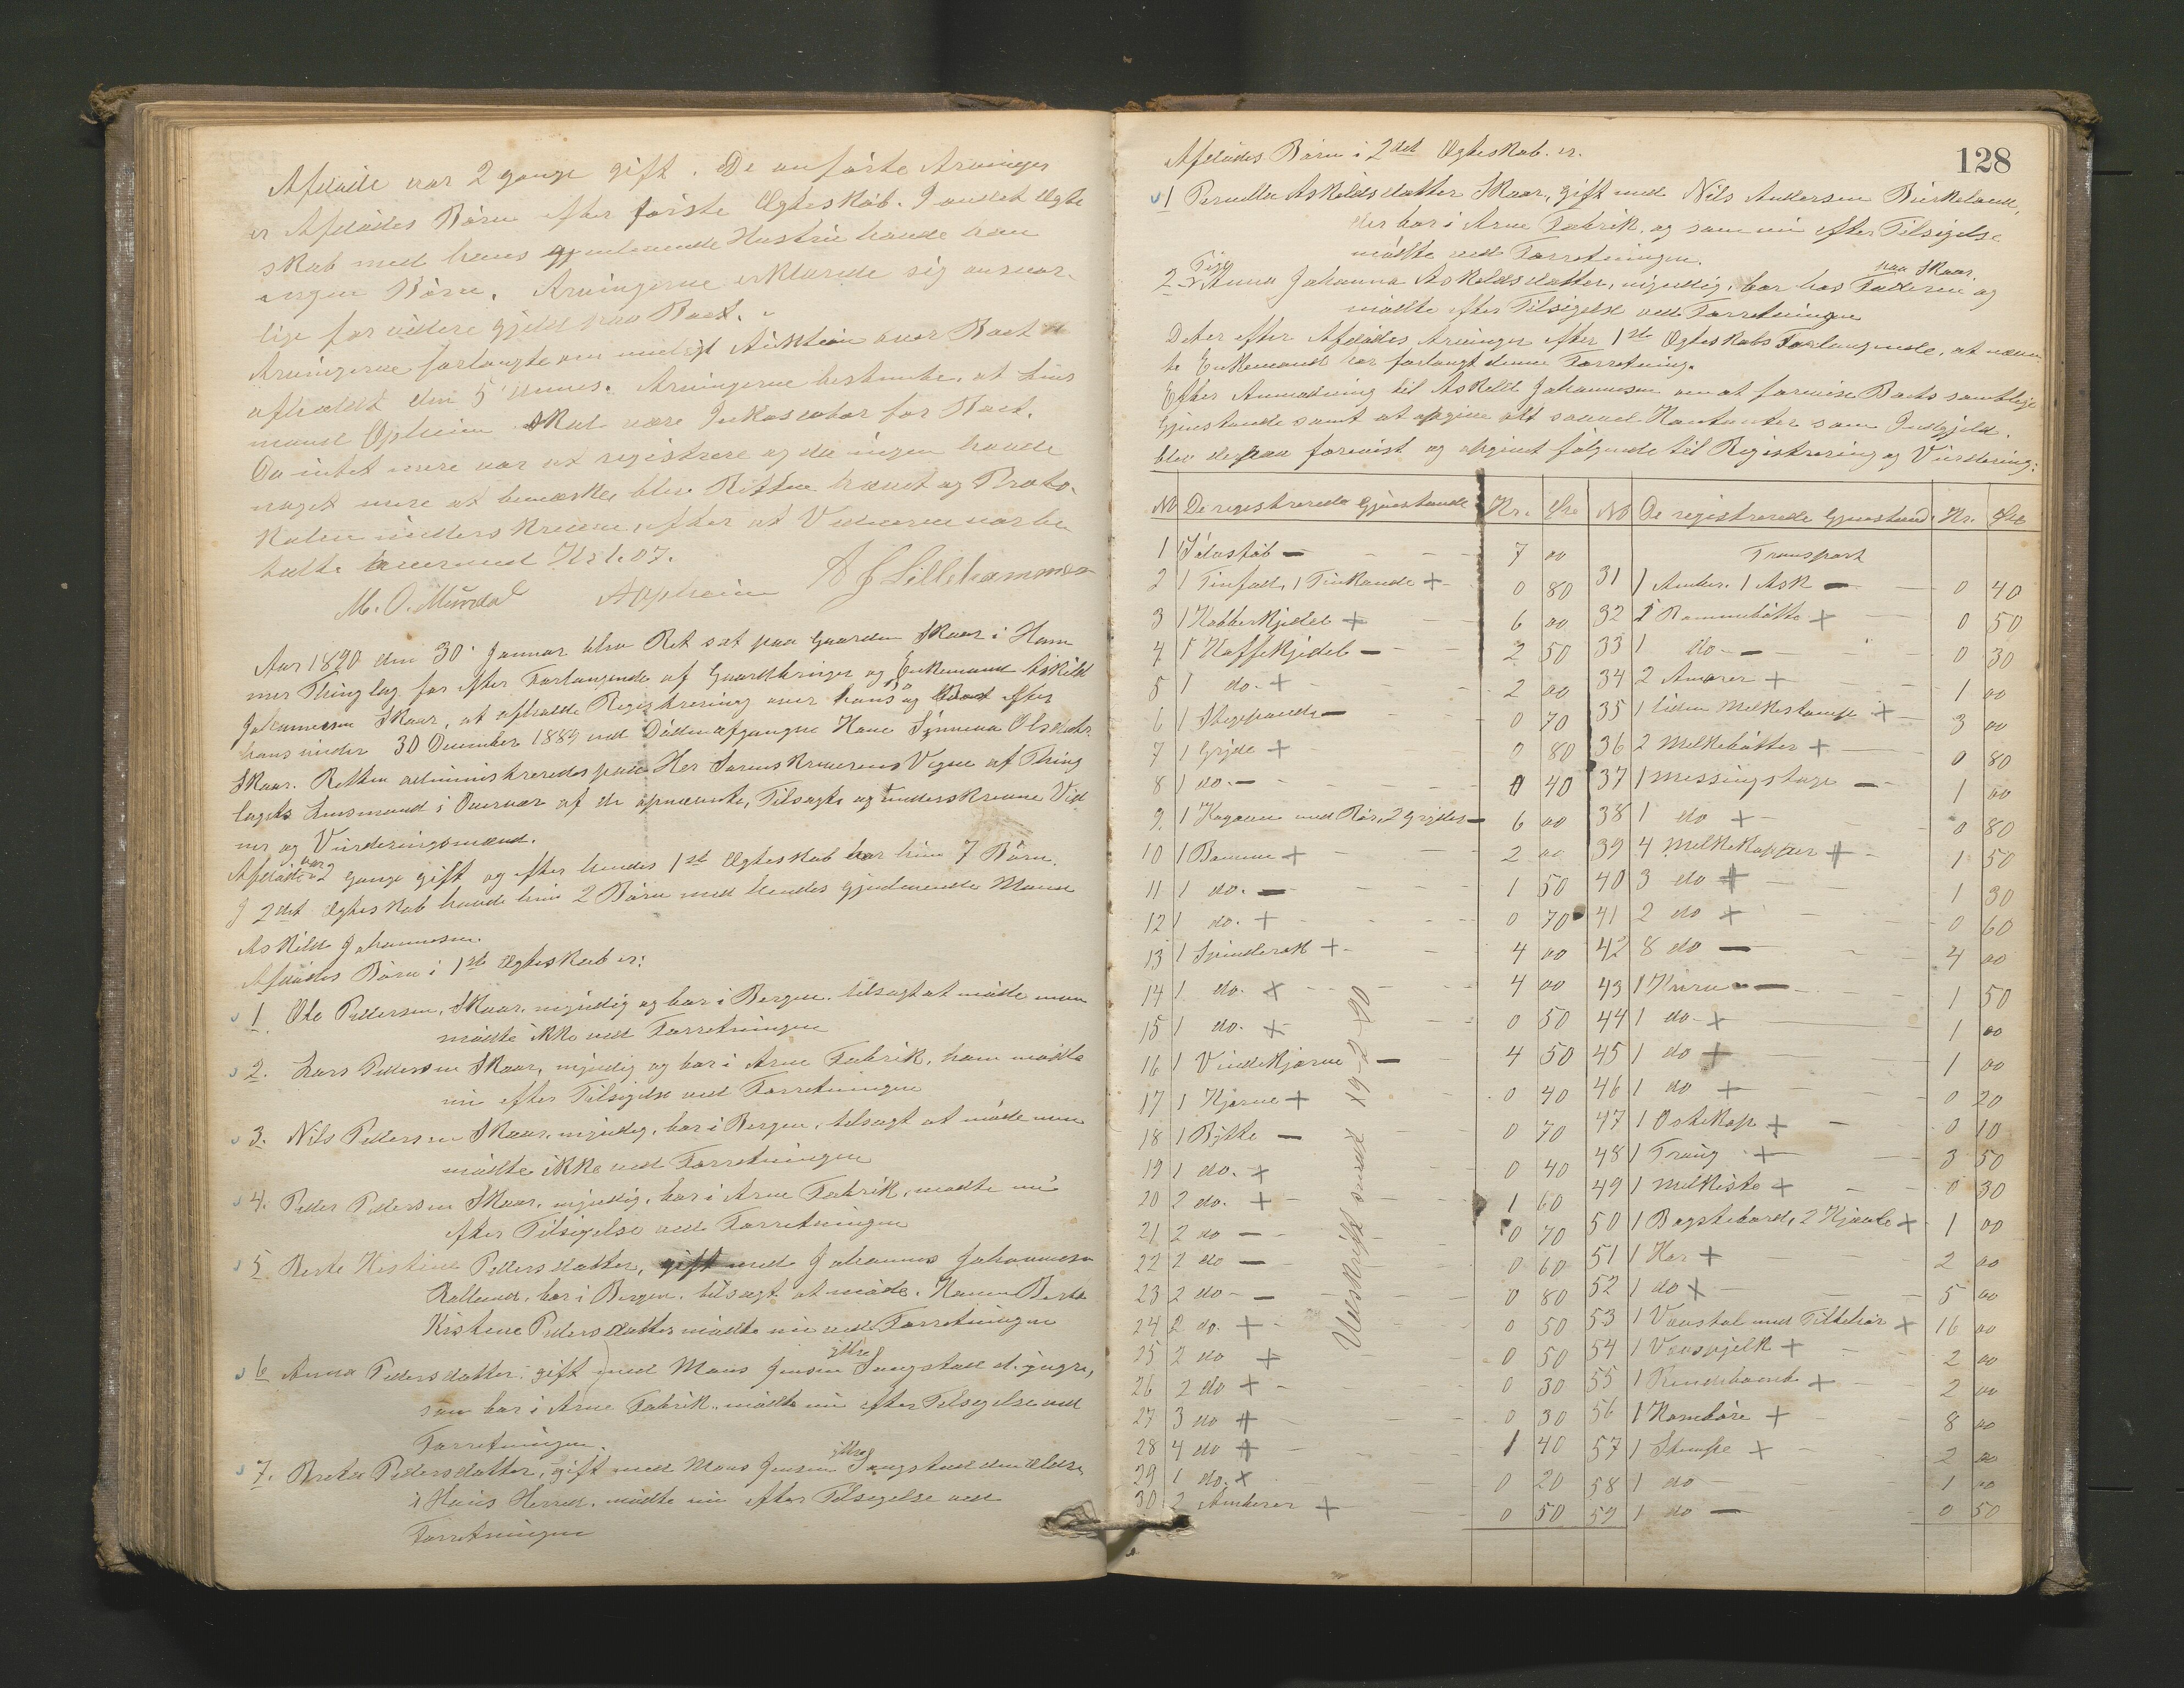 Afdøde var 2 gange gift. De anførte Arvinger
er Afdødes Børn efter første Ægteskab. I andet Ægte
skab med hans gjenlevende Hustru havde han
ingen Børn. Arvingerne erklærede sig ansvar-
lige for videre gjeld paa Boet.
Arvingerne forlangte om muligt Auktion over Boet
afholdt den 5 dennes. Arvingerne bestemte, at Lens
mand Opheim skal være Inkassator for Boet.
Da intet mere var at registrere og da ingen havde
noget mere at bemærke, blev Retten hævet og Proto-
kolen underskreven, efter at Vidnerne var be
talte hver med Kr 1.07.
M. O. Mürdal AOpheim A J Lillehammer
Aar 1890 den 30 Januar blev Ret sat paa Gaarden Skaar i Ham
mer Thinglag for efter Forlangende af Gaardbruger og Enkemand Askild
Johannesen Skaar, at afholde Registrering over hans og Boet efter
hans under 30 December 1889 ved Døden afgangne Kone Synneva Olsdatter
Skaar. Retten administreredes paa Hr Sorenskriverens Vegne af Thing
lagets Lensmand i Overvær af de opnævnte, Tilsagte og underskrevne Vid
ner og Vurderingsmænd.
Afdøde var 2 gange gift og efter hendes 1ste Ægteskab har hun 7 Børn.
I 2det Ægteskab havde hun 2 Børn med hendes gjenlevende Mand
Askild Johannesen.
Afdødes Børn i 1ste Ægteskab er:
1. Ole Pedersen Skaar, myndig og bor i Bergen, tilsagt at møde men
mødte ikke ved Forretningen
2. Lars Pedersen Skaar, myndig og bor i Arne Fabrik, ham mødte
nu efter Tilsigelse ved Forretningen
3. Nils Pedersen Skaar, myndig, bor i Bergen, tilsagt at møde men
mødte ikke ved Forretningen
4. Peder Pedersen Skaar, myndig, bor i Arne Fabrik, mødte nu
efter Tilsigelse ved Forretningen
5 Berte Kistine Pedersdatter, gift med Johannes Johannesen
bor i Bergen, tilsagt at møde. Konen Berte
Kistine Pedersdatter mødte nu ved Forretningen
6 Anna Pedersdatter, gift med Mons Jensen Ytre Songstad d. yngre,
som bor i Arne Fabrik, mødte nu efter Tilsigelse ved
Forretningen.
7. Brita Pedersdatter, gift med Mons Jensen Ytre Songstad den ældre
i Haus Herred, mødte nu efter Tilsigelse ved
Forretningen
128
Afdødes Børn i 2det Ægteskab er.
1 Pernille Askildsdatter Skaar, gift med Nils Andersen Birkeland,
der bor i Arne Fabrik, og som nu efter Tilsigelse
mødte ved Forretningen.
2 Pige Anna Johanna Askildsdatter, myndig, bor hos Faderen paa Skaar, og
mødte efter Tilsigelse ved Forretningen
Det er efter Afdødes Arvinger efter 1ste Ægteskabs Forlangende, at nævn
te Enkemand har forlangt denne Forretning.
Efter Anmodning til Askild Johannesen om at forevise Boets samtlige
Gjenstande samt at opgive alt saavel Kontanter som Indgjeld,
blev derpaa forevist og opgivet følgende til Registrering og Vurdering:
No De registrerede Gjenstande Kr. Øre No De registrerede Gjenstand. Kr. Øre
1 1 Sølvstøb — 7 00 Transport
2 1 Tinfad, 1 Tinkande + 0 80 31 1 Anker. 1 Ask — 0 40
3 1 Kobberkjedel + 6 00 32 1 Rømmebøtte + 0 50
4 1 Kaffekjedel — 2 50 33 1 do — 0 30
5 1 do. + 2 00 34 2 Amarer + 1 00
6 1 Stegepande — 0 70 35 1 liden Melkestampe + 3 00
7 1 Gryde + 0 80 36 2 Melkebøtter + 0 80
8 1 do. — 0 40 37 1 messingstage — 1 00
9. 1 Kogeovn med Rør, 2 Gryder — 6 00 38 1 do + 0 80
10 1 Bomme + 2 00 39 4 Melkekopper + 1 50
11 1 do. — 1 50 40 3 do + 1 30
12 1 do. + 0 70 41 2 do + 0 60
13 1 Spinderok + 4 00 42 8 do — 4 00
14 1 do. + 4 00 43 1 Kurv — 1 50
15 1 do. + 0 50 44 1 do + 1 00
16 1 Vindekjærne — 4 50 45 1 do + 1 00
17 1 Kjærne + 0 40 46 1 do + 0 20
18 1 Bytte — 0 70 47 1 Ostekop + 0 10
19 1 do. + 0 40 48 1 Traug + 3 50
20 2 do. + 1 60 49 1 Melkiste + 0 30
21 2 do — 0 70 50 1 Bagstebord, 2 Kjævle + 1 00
22 2 do — 0 60 51 1 Kar + 2 00
23 2 do — 0 80 52 1 do + 5 00
24 2 do. + 0 50 53 1 Vævstol med Tilbehør + 16 00
25 2 do + 0 50 54 1 + 2 00
26 2 do + 0 30 55 1 + 2 00
27 3 do + 0 30 56 1 Kornbøre + 8 00
28 4 do + 1 40 57 1 Stampe + 2 00
29 1 do. + 0 20 58 1 do 1 00
30 2 Ankerer + 0 50 59 1 do — 0 50
Udskrift sendt 19-2-90